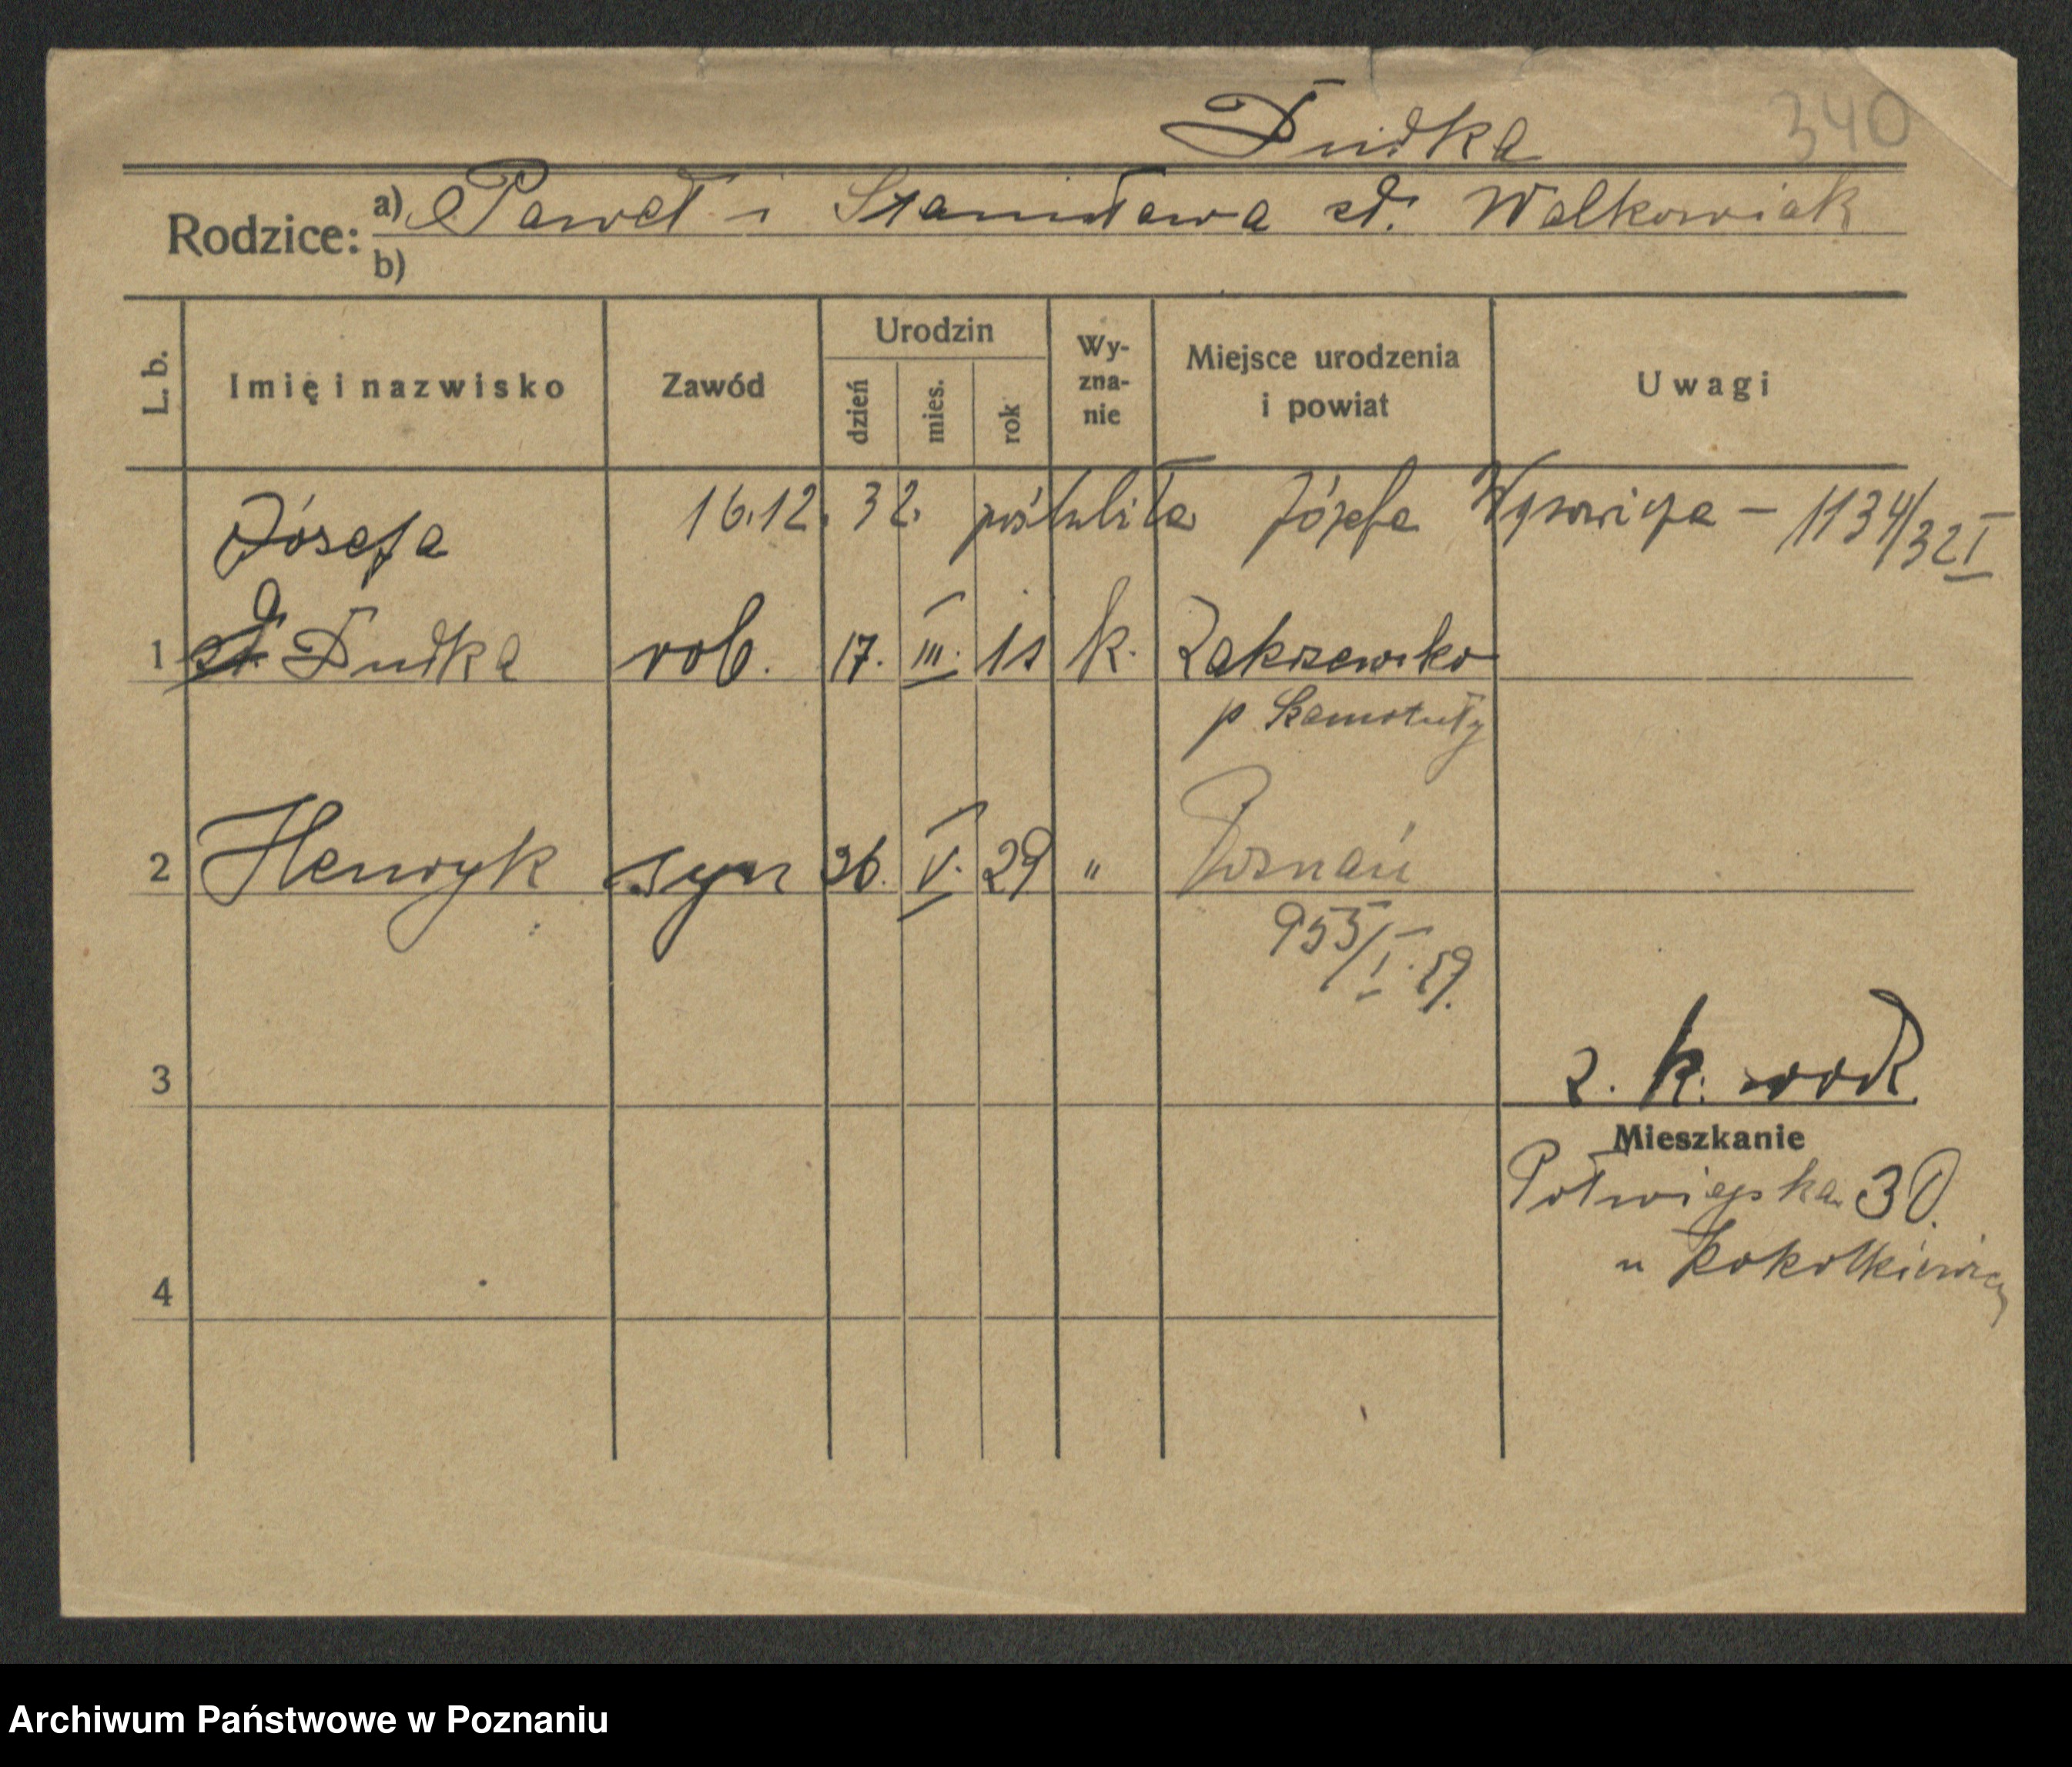 Dudka
340
Rodzice: a) Paweł i Stanisława zd. Walkowiak
b)
L. b. Imię i nazwisko Zawód Urodzin dzień mies. rok Wy-zna-nie Miejsce urodzenia i powiat Uwagi
16.12.32. poślubiła Józefa - 1134/32 I
Józefa
1 Dudka rob. 17. III. k. Zakrzewsko
p Szamotuły
2 Henryk syn 26. V. 29 " Poznań
955/I.29.
3 z. k. wod.
Mieszkanie
Półwiejska 30.
4 u
Archiwum Państwowe w Poznaniu